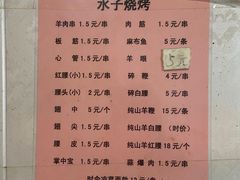 水子烧烤
羊肉串 1.5元/串 肉筋 1.5元/串
板筋 1.5元/串 麻布鱼 5元/条
心管 1.5元/串 羊眼 5元
红腰(小) 1.5元/串 碎鞭 4元/串
腰头(小) 2元/串 碎白腰 5元/串
翅中 5元/个 纯山羊鞭 15元/条
翅尖 1.5元/串 纯山羊白腰 (时价)
腰皮 1.5元/串 纯山羊红腰 18元/个
掌中宝 1.5元/串 蒜爆肉 1.5元/串